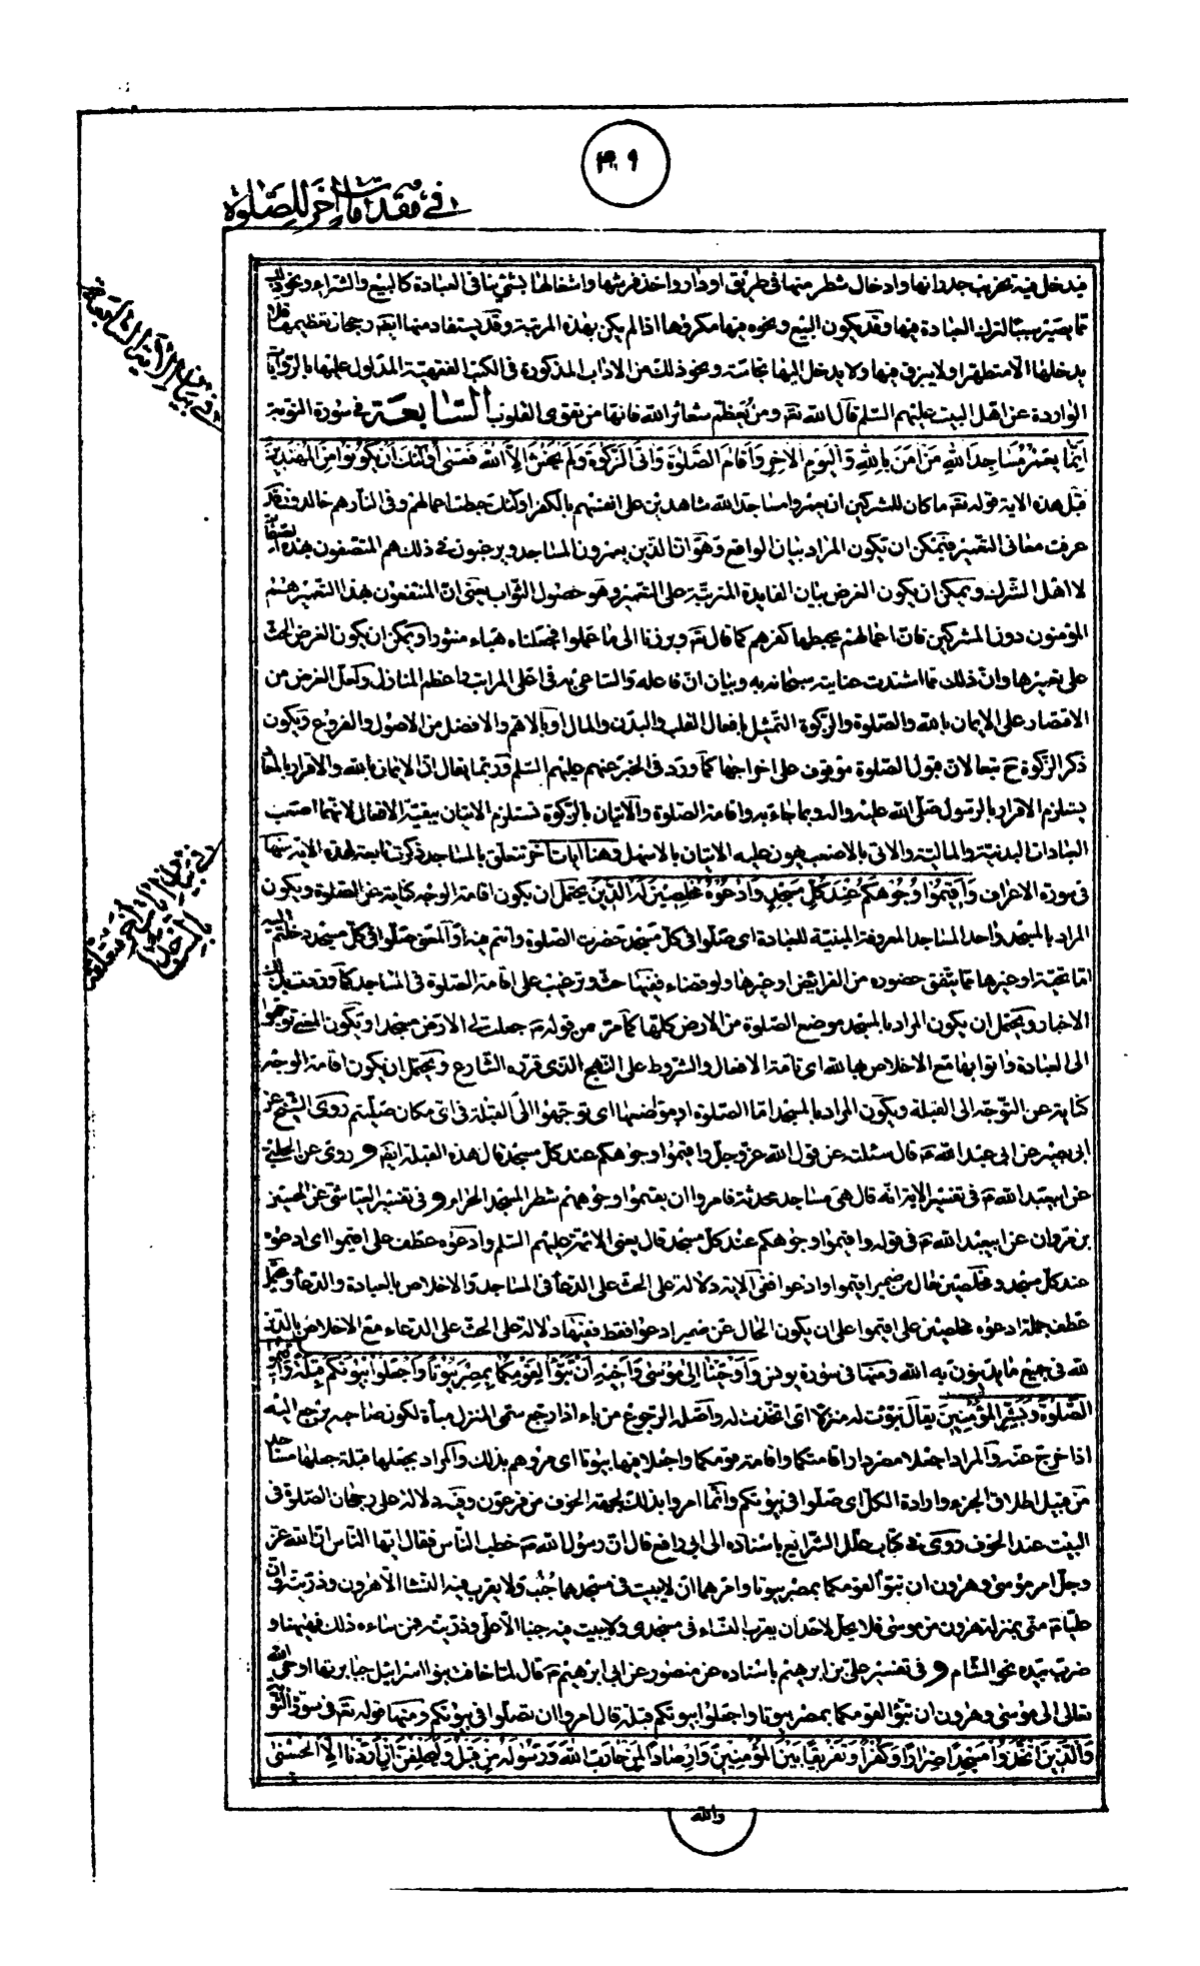 ٣٠٩
في مقدمات اخر للصلوة
فيدخل فيه تخريب جدرانها وادخال شطر منها في طريق او دار واخذ فرشها واشغالها بشئ ينافى العبادة كالبيع والشراء ونحو ذلك
مما يصير سببا لترك العبادة فيها وقد يكون البيع ونحوه فيها مكروها اذا لم يكن بهذه المرتبة وقد يستفاد منها ايضا رجحان تعظيمها فلا
يدخلها الا متطهرا ولا يبزق فيها ولا يدخل اليها نجاسة ونحو ذلك من الاداب المذكورة في الكتب الفقهية المدلول عليها بالروايات
الواردة عن اهل البيت عليهم السلم قال الله تعه ومن يعظم شعائر الله فانها من تقوى القلوب السابعة في سورة التوبة
انما يعمر مساجد الله من امن بالله واليوم الاخر واقام الصلوة واتى الزكوة ولم يخش الا الله فعسى اولئك ان يكونوا من المهتدين
قبل هذه الاية قوله تعه ما كان للمشركين ان يعمروا مساجد الله شاهدين على انفسهم بالكفر اولئك حبطت اعمالهم وفي النار هم خالدون قد
عرفت معاني التعمير فيمكن ان تكون المراد بيان الواقع وهو ان الذين يعمرون المساجد ويرغبون في ذلك هم المتصفون بهذه الصفات
لا اهل الشرك ويمكن ان يكون الغرض بيان الفايدة المترتبة على التعمير وهو حصول الثواب يعنى ان المنتفعون بهذا التعمير هم
المؤمنون دون المشركين فان اعمالهم يحبطها كفرهم كما قال تعه وبرزنا الى ما عملوا فجعلناه هباء منثورا ويمكن ان يكون الغرض الحث
على تعميرها وان ذلك مما اشتدت عنايته سبحانه به وبيان ان فاعله والساعي به في اعلى المراتب واعظم المنازل ولعل الغرض من
الاقتصار على الايمان بالله والصلوة والزكوة التمثيل بافعال القلب والبدن والمال او بالاهم والافضل من الاصول والفروع ويكون
ذكر الزكوة ح تبعا لان قبول الصلوة موقوف على اخراجها كما ورد في الخبر عنهم عليهم السلم وربما يقال ان الايمان بالله والاقرار بالمعاد
يستلزم الاقرار بالرسول صلى الله عليه واله وبما جاء به واقامة الصلوة والاتيان بالزكوة تستلزم الاتيان ببقية الافعال لانهما اصعب
العبادات البدنية والمالية والاتى بالاصعب يهون عليه الاتيان بالاسهل وهنا ايات اخر تتعلق بالمساجد ذكرت تابعة لهذه الاية منها
في سورة الاعراف واقيموا وجوهكم عند كل مسجد وادعوه مخلصين له الدين يحتمل ان يكون اقامة الوجه كناية عن الصلوة ويكون
المراد بالمسجد واحد المساجد المعروفة المبنية للعبادة اى صلوا في كل مسجد حضرت الصلوة وانتم فيه او المعنى صلوا في كل مسجد دخلتم اليه
اما تحية او غيرها مما يتفق حضوره من الفرايض او غيرها ولو قضاء ففيها حث وترغيب على اقامة الصلوة في المساجد كما وردت بذلك
الاخبار ويحتمل ان يكون المراد بالمسجد موضع الصلوة من الارض كلها كما مر من قوله ص جعلت لي الارض مسجدا ويكون المعنى توجهوا
الى العبادة وأتوا بها مع الاخلاص بها لله اى تامة الافعال والشروط على النهج الذي قرره الشارع ويحتمل ان يكون اقامة الوجه
كناية عن التوجه الى القبلة ويكون المراد بالمسجد اما الصلوة او مواضعها اى توجهوا الى القبلة في اى مكان صليتم روى الشيخ عن
ابى بصير عن ابى عبد الله ع قال سئلته عن قول الله عز وجل واقيموا وجوهكم عند كل مسجد قال هذه القبلة ايضا و روى عن الحلبى
عن ابيعبد الله ع في تفسير الاية انه قال هى مساجد محدثة فامروا ان يقيموا وجوههم شطر المسجد الحرام و في تفسير العياشى عن الحسين
بن مهران عن ابيعبد الله ع في قوله واقيموا وجوهكم عند كل مسجد قال يعنى الائمة عليهم السلم وادعوه عطف على اقيموا اى ادعوه
عند كل مسجد ومخلصين حال من ضمير اقيموا وادعوا ففى الاية دلالة على الحث على الدعاء في المساجد والاخلاص بالعبادة والدعاء ويحتمل
عطف جملة ادعوه مخلصين على اقيموا على ان يكون الحال عن ضمير ادعوا فقط ففيها دلالة على الحث على الدعاء مع الاخلاص بالدين
لله في جميع ما يدينون به الله ومنها في سورة يونس واوحينا الى موسى واخيه ان تبوءا لقومكما بمصر بيوتا واجعلوا بيوتكم قبلة واقيموا
الصلوة وبشر المؤمنين يقال تبوئت له منزلا اى اتخذت له واصله الرجوع من باء اذا رجع سمى المنزل مباءة لكون صاحبه يرجع اليه
اذا خرج عنه والمراد اجعلا مصر دار اقامتكما واقامة قومكما واجعلا فيها بيوتا اى مروهم بذلك والمراد بجعلها قبلة جعلها مساجد
من قبيل اطلاق الجزء وارادة الكل اى صلوا في بيوتكم وانما امروا بذلك لجهة الخوف من فرعون وفيه دلالة على رجحان الصلوة في
البيت عند الخوف وروى في كتاب علل الشرايع باسناده الى ابى رافع قال ان رسول الله ص خطب الناس فقال ايها الناس ان الله عز
وجل امر موسى وهرون ان تبوءا لقومكما بمصر بيوتا وامرهما ان لا يبيت في مسجدهما جنب ولا يقرب فيه النساء الا هرون وذريته وان
عليا ع منى بمنزلة هرون من موسى فلا يحل لاحد ان يقرب النساء في مسجدى ولا يبيت فيه جنبا الا على وذريته فمن ساءه ذلك فههنا و
ضرب بيده نحو الشام و في تفسير على بن ابرهيم باسناده عن منصور عن ابى ابرهيم ع قال لما خافت بنوا اسرائيل جبابرتها اوحى الله
تعالى الى موسى وهرون ان تبوءا لقومكما بمصر بيوتا واجعلوا بيوتكم قبلة قال امروا ان يصلوا في بيوتكم ومنها قوله تعه في سورة التوبة
والذين اتخذوا مسجدا ضرارا وكفرا وتفريقا بين المؤمنين وارصادا لمن حارب الله ورسوله من قبل وليحلفن ان اردنا الا الحسنى
والله
في بيان الآية السابعة
في بيان آيات اخر متعلقة
بالمساجد